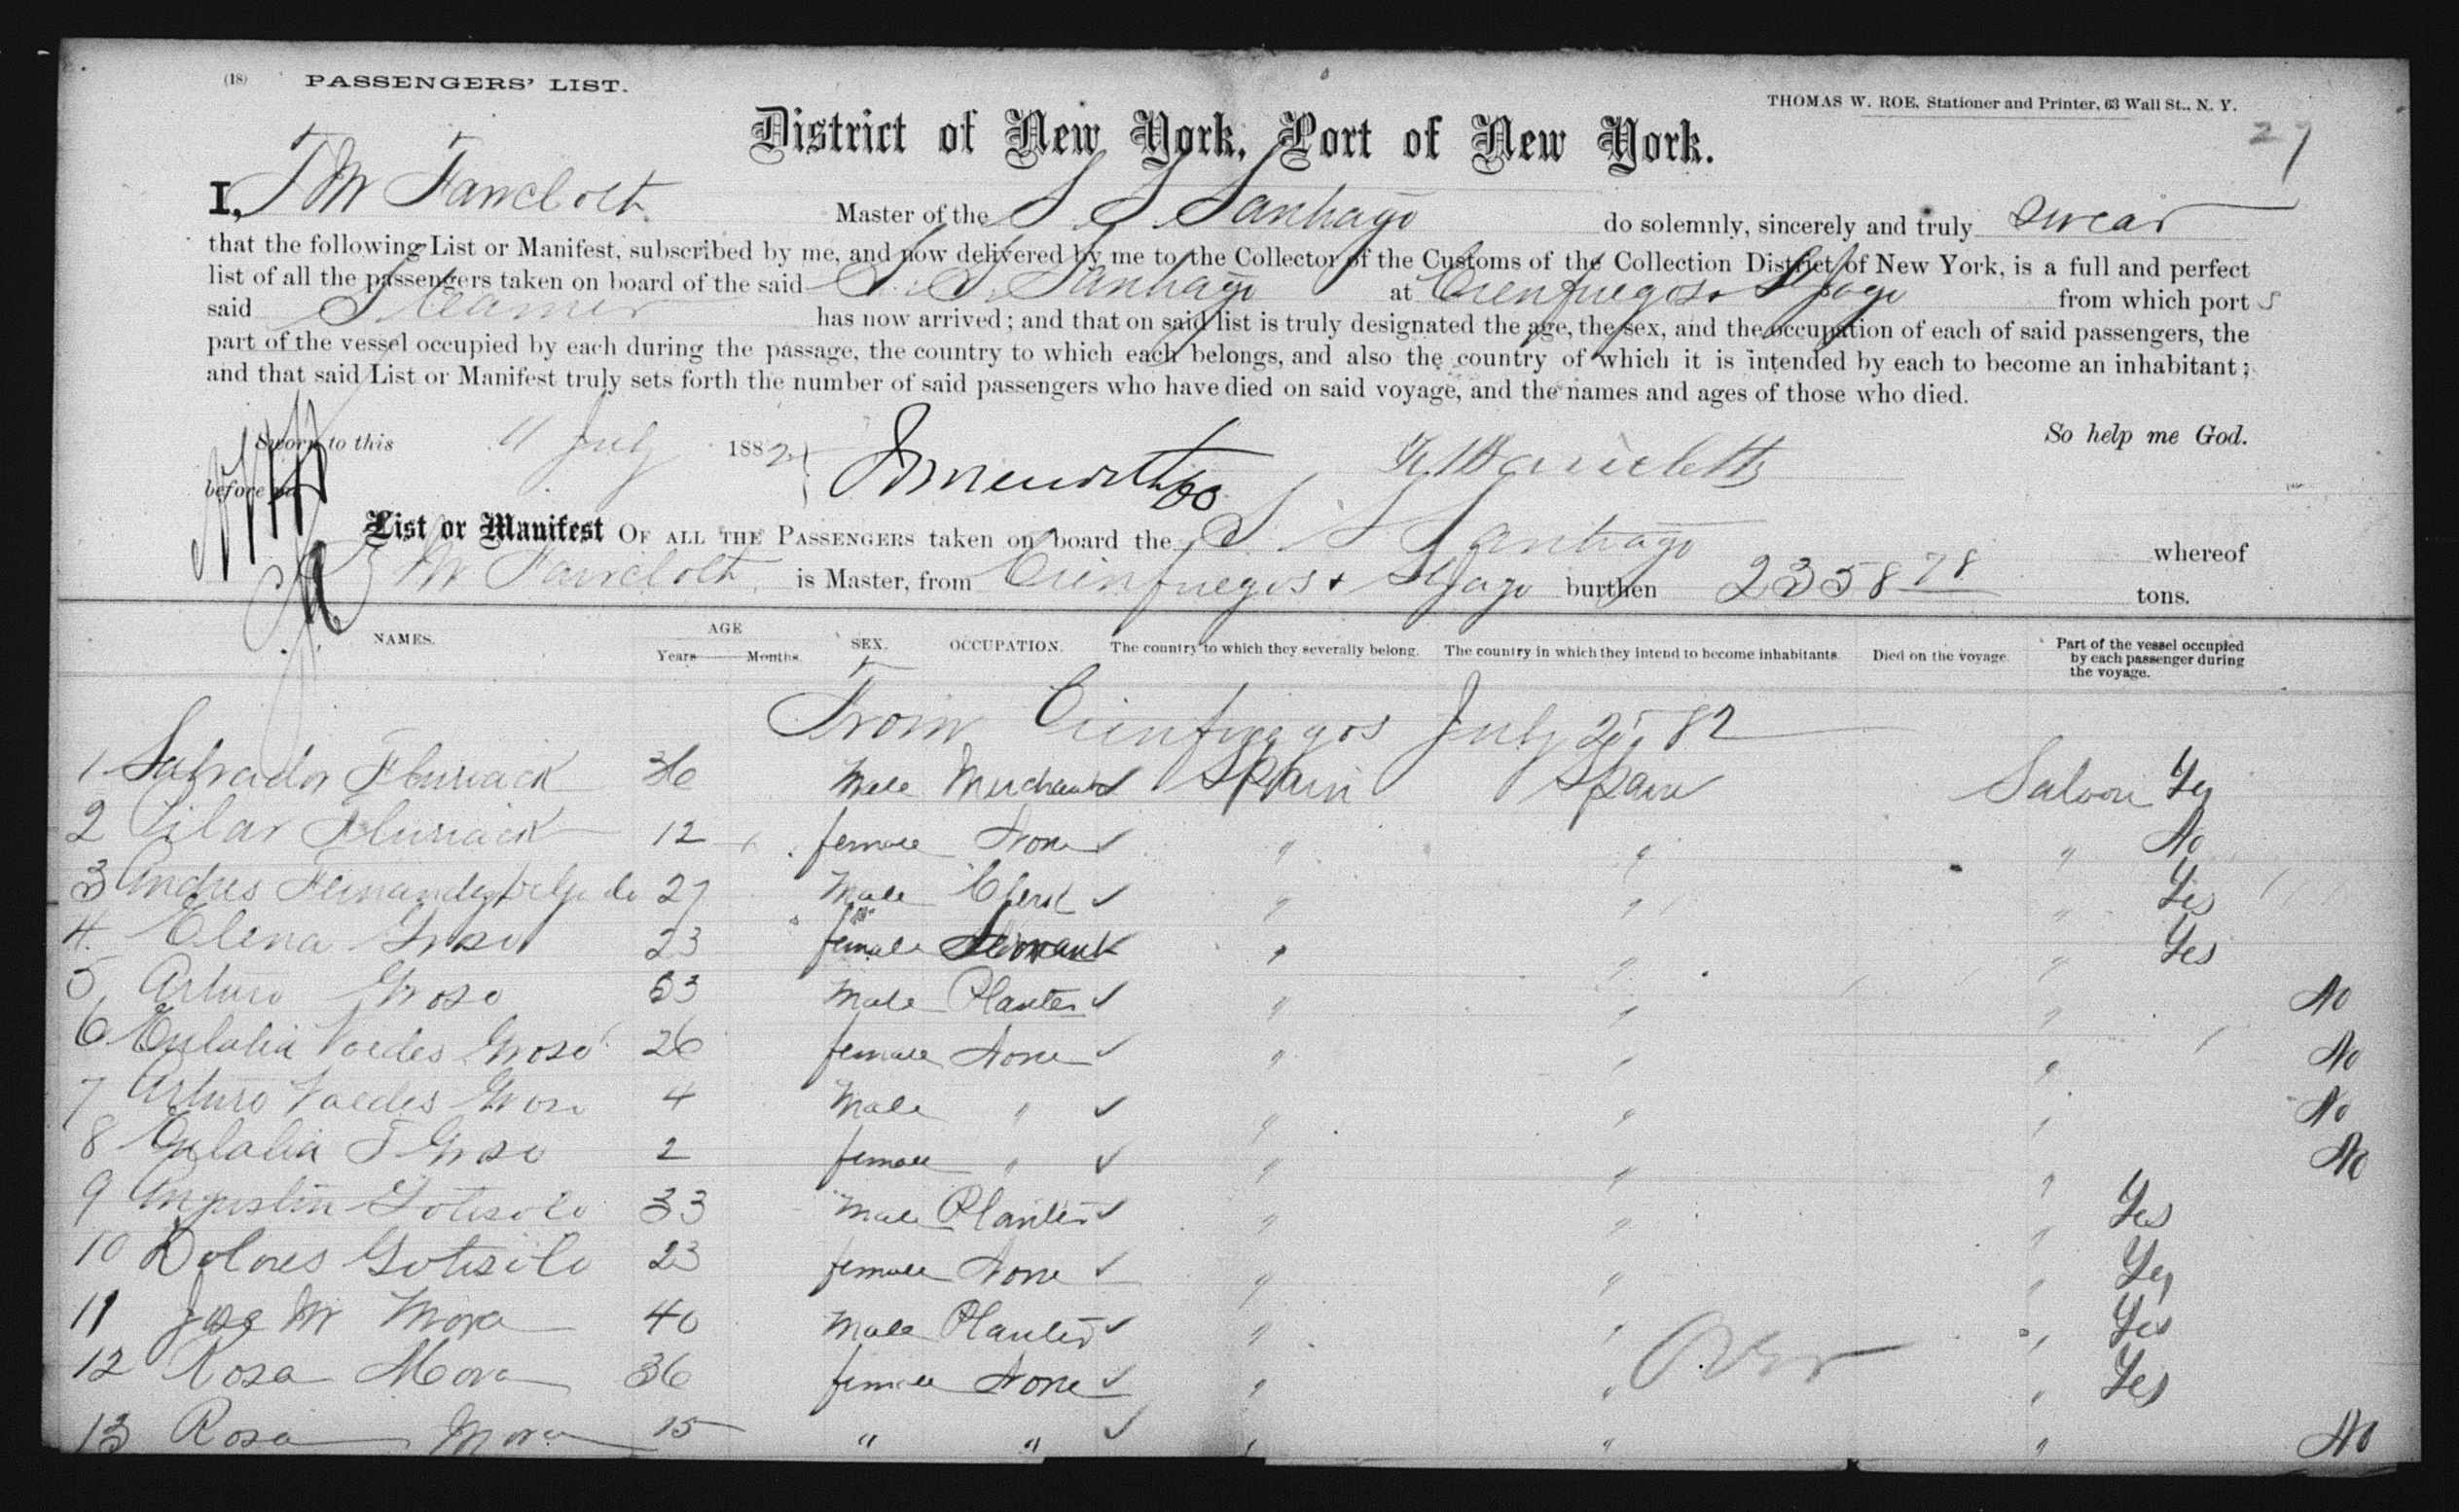 (18) PASSENGERS' LIST.
THOMAS W. ROE, Stationer and Printer, 63 Wall St., N. Y.
27
District of New York, Port of New York.
I, T M Faircloth Master of the S S Santiago do solemnly, sincerely and truly swear
that the following List or Manifest, subscribed by me, and now delivered by me to the Collector of the Customs of the Collection District of New York, is a full and perfect
list of all the passengers taken on board of the said S. S. Santiago at Cienfuegos & StJago from which port s
said Steamer has now arrived; and that on said list is truly designated the age, the sex, and the occupation of each of said passengers, the
part of the vessel occupied by each during the passage, the country to which each belongs, and also the country of which it is intended by each to become an inhabitant;
and that said List or Manifest truly sets forth the number of said passengers who have died on said voyage, and the names and ages of those who died.
So help me God.
Sworn to this 11 July 1882
before me
List or Manifest OF ALL THE PASSENGERS taken on board the S S Santiago whereof
M Faircloth is Master, from Cienfuegos & StJago burthen 2358 78 tons.
NAMES. AGE Years Months. SEX. OCCUPATION. The country to which they severally belong. The country in which they intend to become inhabitants. Died on the voyage. Part of the vessel occupied by each passenger during the voyage.
From Cienfuegos July 2, 82
1 Salvador 36 Male Merchant Spain Spain Saloon Yes
2 Pilar 12 female None " " " No
3 Andres Fernandez 27 Male Clerk " " " Yes
4. Elena Groso 23 female Servant " " " Yes
5 Arturo Groso 53 Male Planter " " " No
6 Eulalia Valdes Groso 26 female None " " " No
7 Arturo Valdes Groso 4 Male " " " " No
8 Eulalia T Groso 2 female " " " " No
9 Augustin Gotisolo 33 Male Planter " " " Yes
10 Dolores Gotisolo 23 female None " " " Yes
11 Jose M Mora 40 Male Planter " " " Yes
12 Rosa Mora 36 female None " " " Yes
Over
13 Rosa Mora 15 " " " " " No